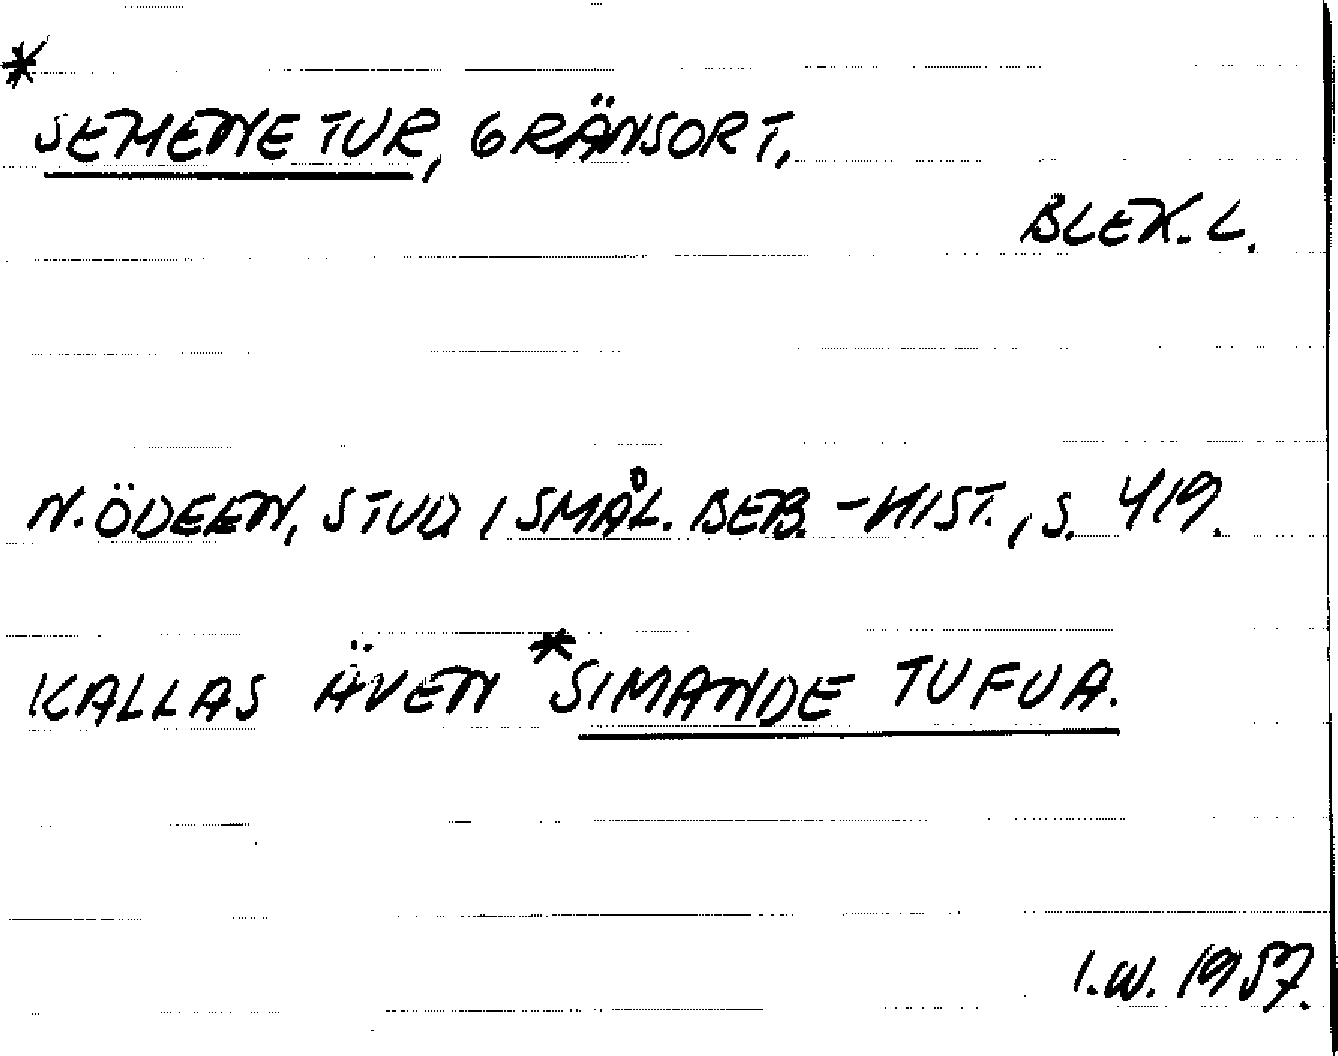 *
SEMENE TUR, GRÄNSORT,
BLEK. L.
N. ÖDEEN, STUD. I SMÅL. BEB.-HIST., S. 419.
KALLAS ÄVEN *SIMANDE TUFUA.
I.W. 1957.